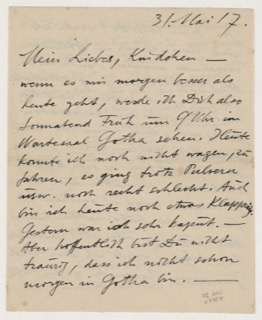 31. Mai 17.
Mein Liebes, Kindchen —
wenn es mir morgen besser als
heute geht, werde ich Dich also
Sonnabend früh um 9 Uhr im
Wartesaal Gotha sehen. Heute
konnte ich noch nicht wagen, zu
fahren, es ging trotz Pulvern
usw. noch recht schlecht. Auch
bin ich heute noch etwas klapprig.
Gestern war ich sehr kaputt. —
Aber hoffentlich bist Du nicht
traurig, dass ich nicht schon
morgen in Gotha bin. —